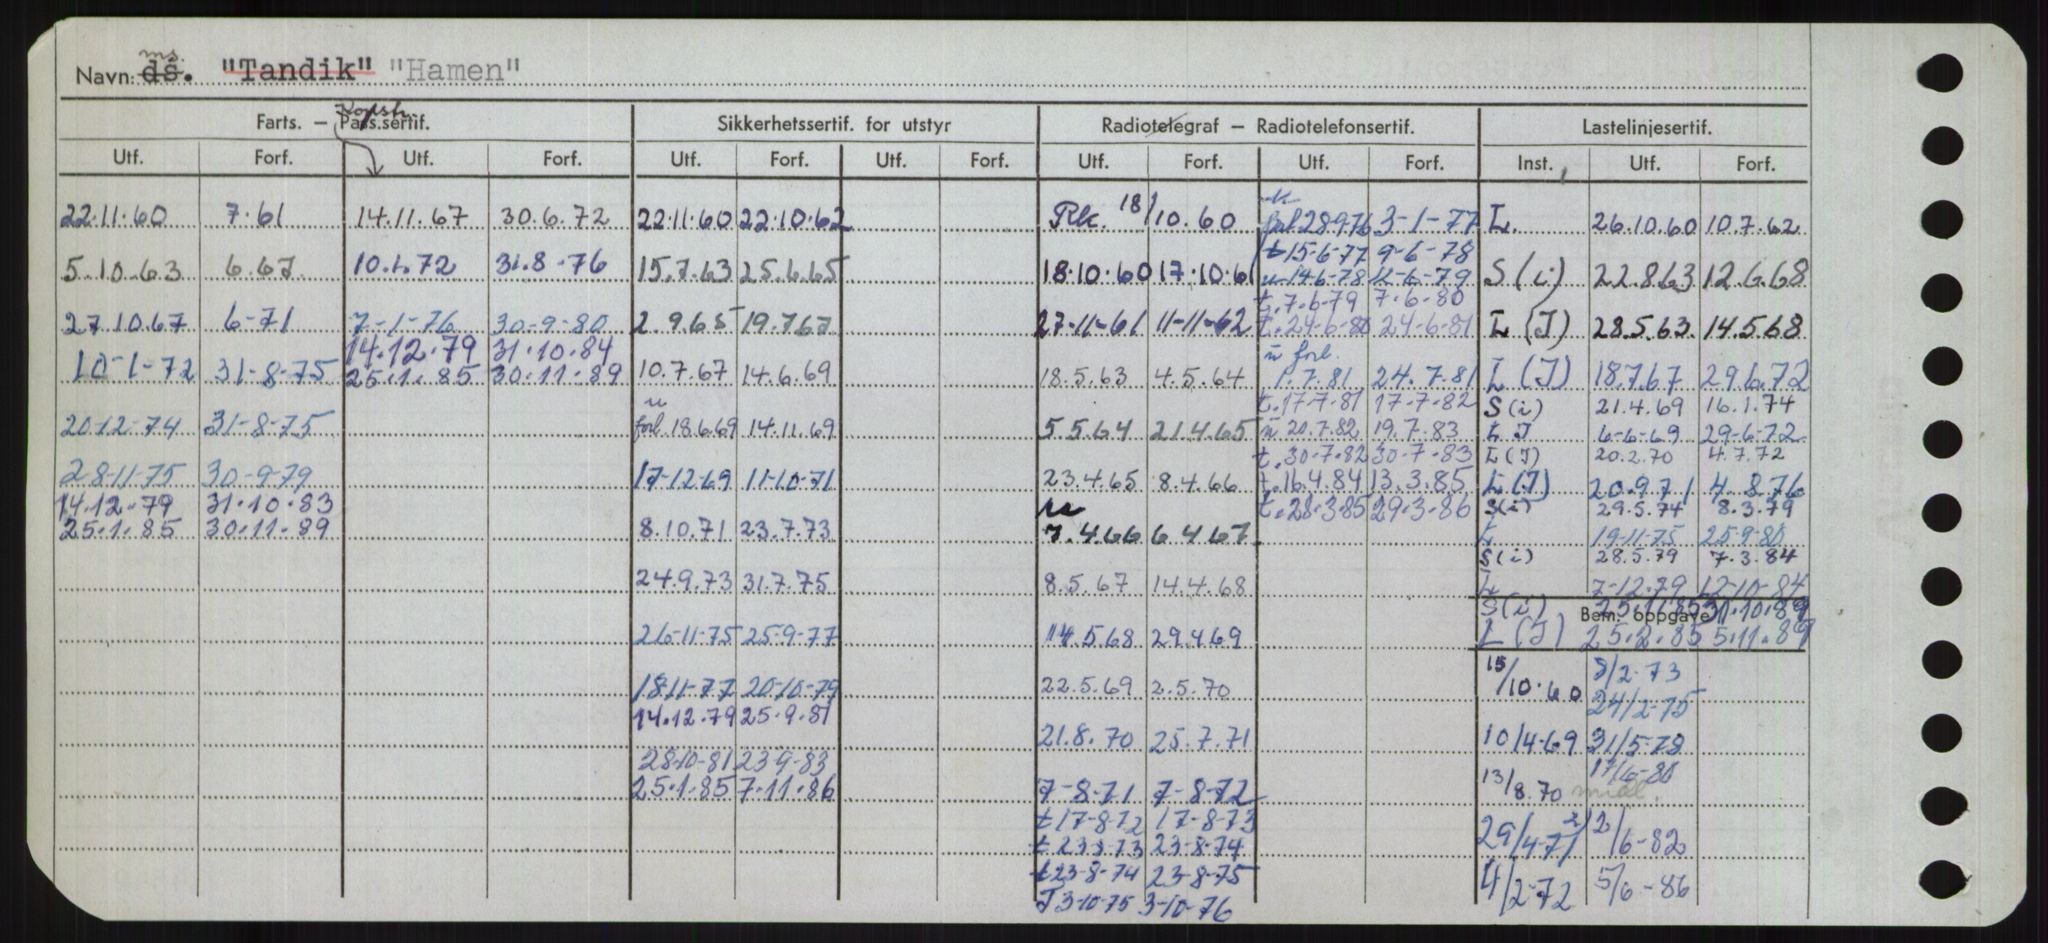 Navn: ds. ms "Tandik" "Hamen"
Farts. — Pass.sertif. Konstr.
Sikkerhetssertif. for utstyr
Radiotelegraf — Radiotelefonsertif.
Lastelinjesertif.
Utf. Forf. Utf. Forf. Utf. Forf. Utf. Forf. Utf. Forf. Utf. Forf. Inst. Utf. Forf.
22.11.60 7.61
5.10.63 6.67
27.10.67 6-71
10-1-72 31-8-75
20-12-74 31-8-75
28-11-75 30-9-79
14.12.79 31.10.83
25.1.85 30.11.89
14.11.67 30.6.72
10.1.72 31.8.76
7-1-76 30-9-80
14.12.79 31.10.84
25.1.85 30.11.89
22.11.60 22.10.62
15.7.63 25.6.65
2.9.65 19.7.67
10.7.67 14.6.69
u
forl. 18.6.69 14.11.69
17-12-69 11-10-71
8.10.71 23.7.73
24.9.73 31.7.75
26-11-75 25-9-77
18-11-77 20-10-79
14.12.79 25.9.81
28-10-81 23-9-83
25.1.85 7.11.86
Rk. 18/10.60
18.10.60 17.10.61
27-11-61 11-11-62
18.5.63 4.5.64
5.5.64 21.4.65
23.4.65 8.4.66
u
7.4.66 6.4.67
8.5.67 14.4.68
14.5.68 29.4.69
22.5.69 2.5.70
21.8.70 25.7.71
7-8-71 7-8-72
t 17-8-72 17-8-73
t 23-8-73 23-8-74
t 23-8-74 23-8-75
T 3-10-75 3-10-76
u
forl 28-9-76 3-1-77
t 15-6-77 9-6-78
u 14-6-78 12-6-79
t. 7.6-79 7-6-80
t. 24-6-80 24-6-81
u forl.
1.7.81 24.7.81
t. 17-7-81 17-7-82
u 20.7.82 19.7.83
t. 30-7-82 30-7-83
t. 16.4.84 13.3.85
t. 28-3-85 29-3-86
L. 26.10.60 10.7.62
S (i) 22.8.63 12.6.68
L (I) 28.5.63 14.5.68
L (I) 18.7.67 29.6.72
S (i) 21.4.69 16.1.74
L I 6-6-69 29-6-72
L (I) 20.2.70 4.7.72
L (I) 20.9.71 4.8.76
S(i) 29.5.74 8.3.79
L 19-11-75 25-9-80
S (i) 28.5.79 7.3.84
L 7-12-79 12-10-84
S (i) 25.1.85 31.10.89
Bem. oppgave
L (I) 25.2.85 5.11.89
15/10.60 8/2-73
24/2-75
10/4-69 31/5-78
17/6-80
13/8.70 midl.
29/4-71 2/6-82
4/2-72 5/6-86